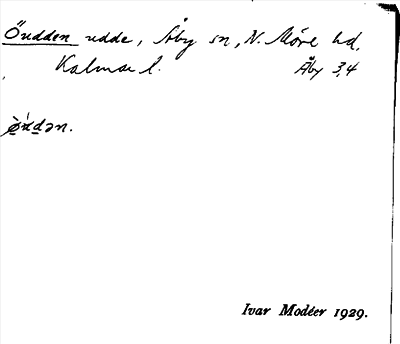 Öudden udde, Åby sn, N. Möre hd,
Kalmar l. Åby 3,4
ö̀ùdən.
Ivar Modéer 1929.